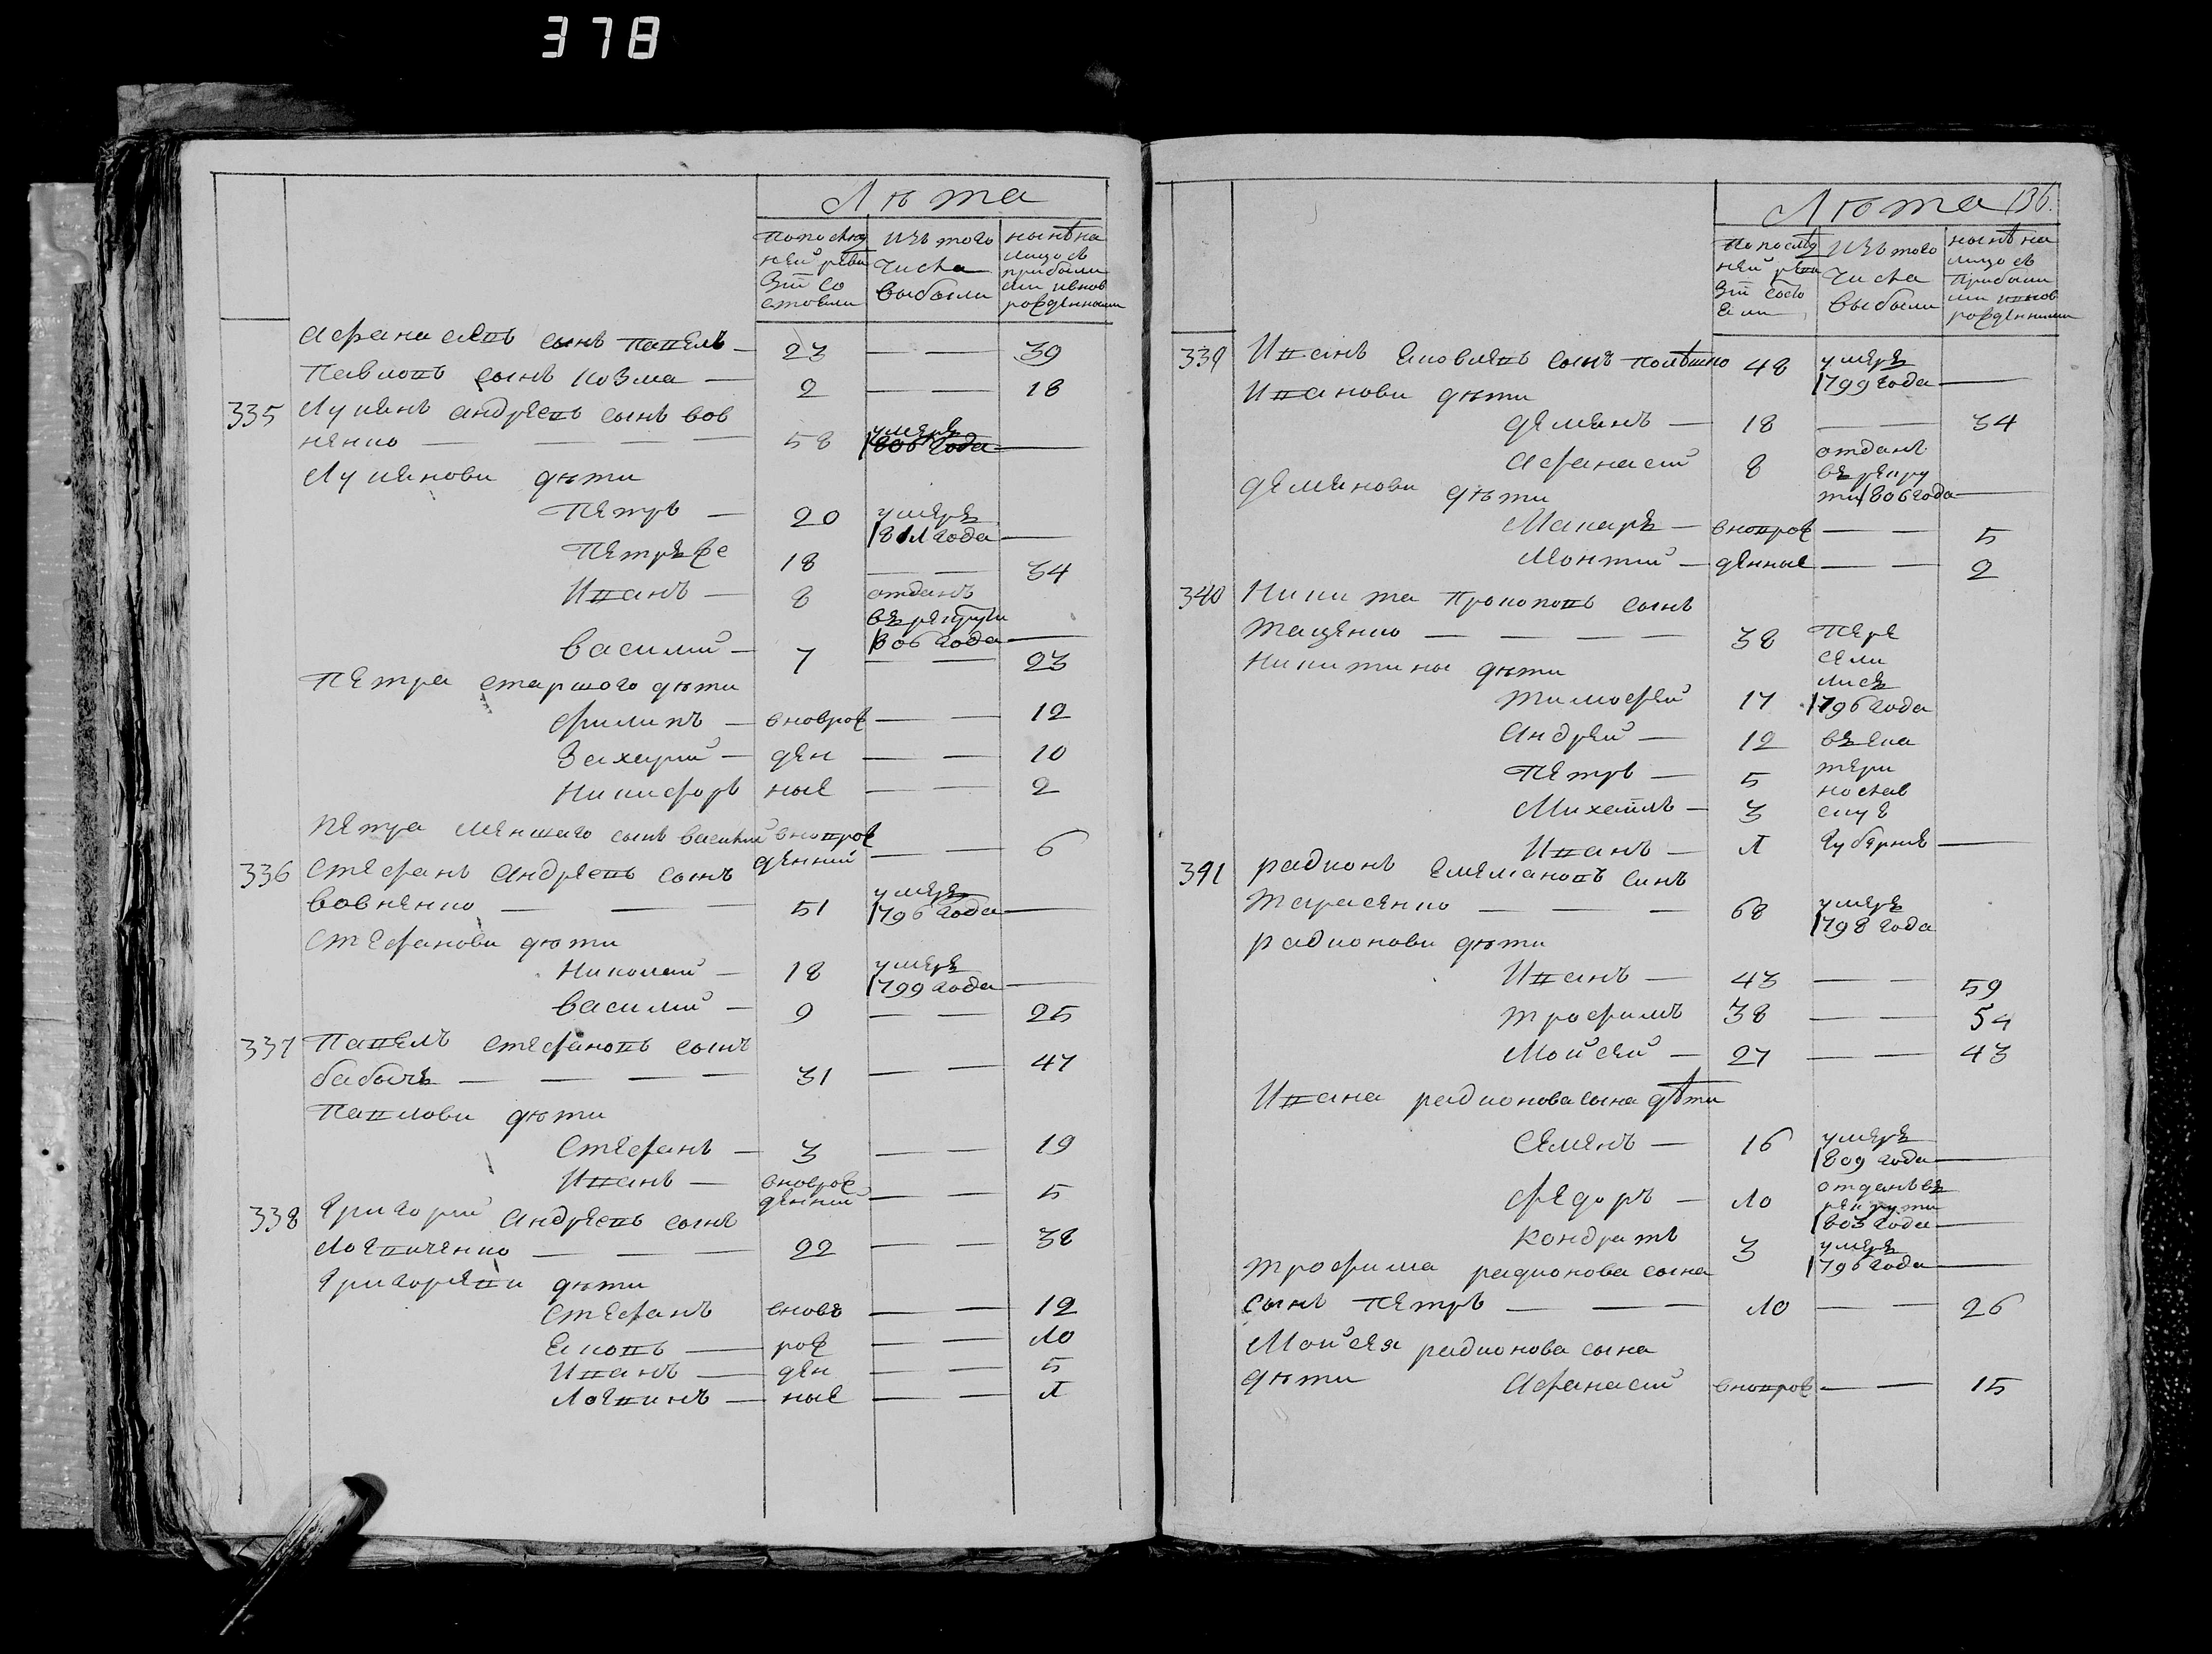 378
Лѣта
По послед
ней реви
зіи со
стояли
Изъ того
числа
выбыли
Нынѣ на
лицо съ
прибыли
ми и внов
рожденными
Афанасіевъ сынъ Павелъ — 23 — — 39
Павловъ сынъ Козма — 2 — — 18
335 Лукиянъ Андреевъ сынъ Вов
ненко — — — — 58 умеръ 1806 года —
Лукиянови дѣти
Петръ — 20 умеръ 1811 года —
Петръ же 18 — — 34
Иванъ — 8 отданъ въ рекруты 1806 года —
Василий — 7 — — 23
Петра старшого дѣти
Филипъ — вноврож — — 12
Захарий — ден — — 10
Никифоръ ные — — 2
Петра меншаго сынъ Василий вноврож
денний — — 6
336 Стефанъ Андреевъ сынъ
Вовненко — — — 51 умеръ 1796 года —
Стефанови дѣти
Николай — 18 умеръ 1799 года —
Василий — 9 — — 25
337 Павелъ Стефановъ сынъ
Бабичъ — — — — 31 — — 47
Павлови дѣти
Стефанъ — 3 — — 19
Иванъ — вноврож
денний — — 5
338 Григорий Андреевъ сынъ
Логвиненко — — — 22 — — 38
Григореви дѣти
Стефанъ вновъ — — 12
Яковъ — рож — — 10
Иванъ — ден — — 5
Логвинъ — ные — — 1
Лѣта 136.
По послед
ней реви
зіи состо
яли
Изъ того
числа
выбыли
Нынѣ на
лицо съ
прибыли
ми и внов
рожденными
339 Иванъ Яковлевъ сынъ 48 умеръ 1799 года —
Иванови дѣти
Демянъ — 18 — — 34
Афанасий 8 отданъ въ рекруты 1806 года —
Демянови дѣти
Макаръ — вноврож — — 5
Монтий — денные — — 2
340 Никита Прокоповъ сынъ
Тащенко — — — — 38 Пере
Никитины дѣти сели
лись
Тимофей 17 1796 года
Андрей — 12 въ Ека
Петръ — 5 тери
нослав
Михайлъ — 3 скуе
Иванъ — 1 Губерние —
341 Радионъ Емелиановъ синъ
Тарасенко — — — 68 умеръ 1798 года
Радионови дѣти
Иванъ — 43 — — 59
Трофимъ 38 — — 54
Мойсей — 27 — — 43
Ивана Радионова сына дѣти
Семенъ — 16 умеръ 1809 года —
Федоръ — 10 отданъ въ рекруты 1803 года —
Кондратъ 3 умеръ 1796 года —
Трофима Радионова сына
сынъ Петръ — — — 10 — — 26
Мойсея Радионова сына
дѣти Афанасий вноврож — — 15